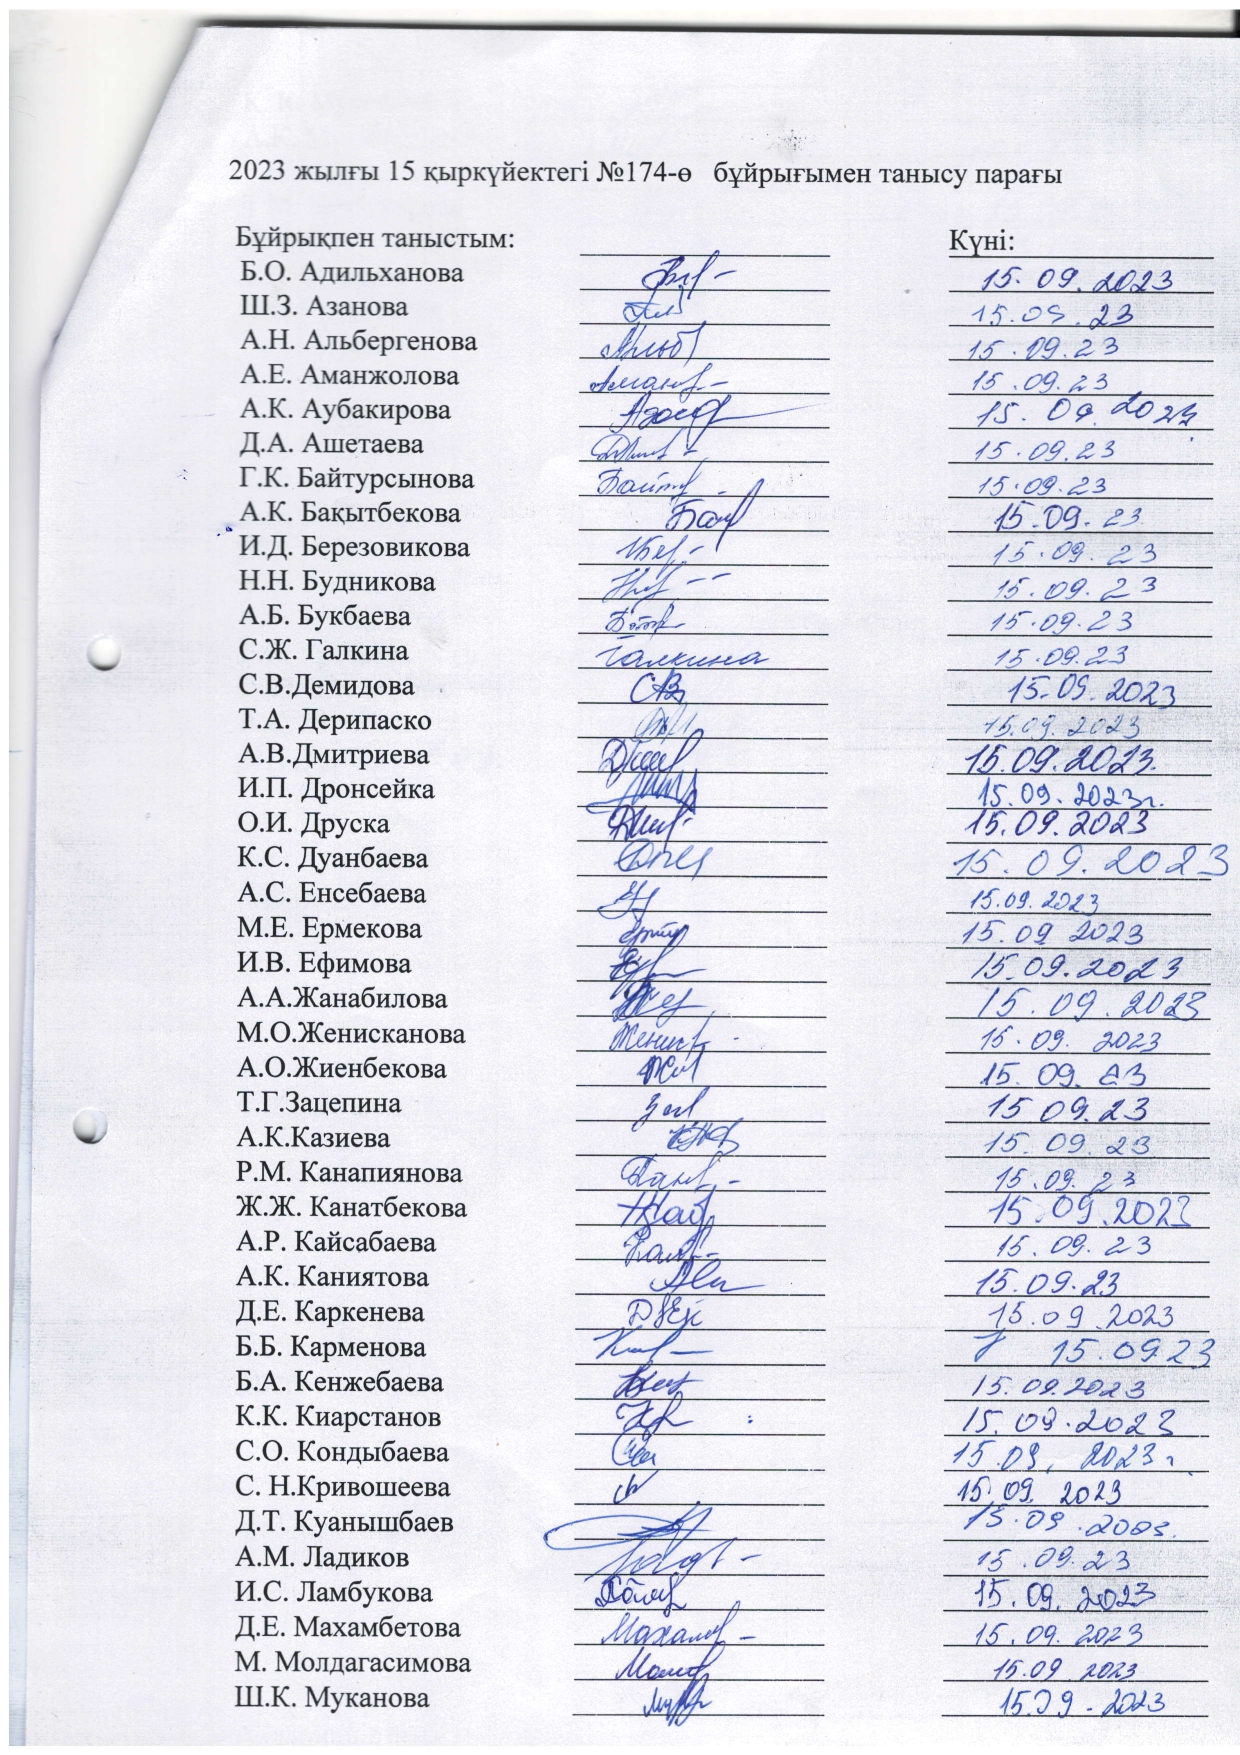 2023 жылғы 15 қыркүйектегі №174-ө бұйрығымен танысу парағы
Бұйрықпен таныстым: Күні:
Б.О. Адильханова 15. 09. 2023
Ш.З. Азанова 15.09.23
А.Н. Альбергенова 15.09.23
А.Е. Аманжолова 15.09.23
А.К. Аубакирова 15. 09. 2023
Д.А. Ашетаева 15.09.23
Г.К. Байтурсынова 15.09.23
А.К. Бақытбекова 15.09. 23
И.Д. Березовикова 15.09. 23
Н.Н. Будникова 15.09. 23
А.Б. Букбаева 15.09.23
С.Ж. Галкина Галкина 15.09.23
С.В.Демидова 15.09.2023
Т.А. Дерипаско 15.09.2023
А.В.Дмитриева 15.09.2023.
И.П. Дронсейка 15.09.2023г.
О.И. Друска 15.09.2023
К.С. Дуанбаева 15.09.2023
А.С. Енсебаева 15.09.2023
М.Е. Ермекова 15.09 2023
И.В. Ефимова 15.09.2023
А.А.Жанабилова 15.09.2023
М.О.Женисканова 15.09. 2023
А.О.Жиенбекова 15. 09. 23
Т.Г.Зацепина 15 09.23
А.К.Казиева 15. 09. 23
Р.М. Канапиянова 15.09. 23
Ж.Ж. Канатбекова 15.09.2023
А.Р. Кайсабаева 15. 09. 23
А.К. Каниятова 15.09.23
Д.Е. Каркенева 15.09.2023
Б.Б. Карменова 15.09.23
Б.А. Кенжебаева 15.09.2023
К.К. Киарстанов 15.09.2023
С.О. Кондыбаева 15.09. 2023г.
С. Н.Кривошеева 15.09. 2023
Д.Т. Куанышбаев 15.09.
А.М. Ладиков 15.09.23
И.С. Ламбукова 15.09. 2023
Д.Е. Махамбетова 15.09. 2023
М. Молдагасимова 15.09. 2023
Ш.К. Муканова 15.09.2023